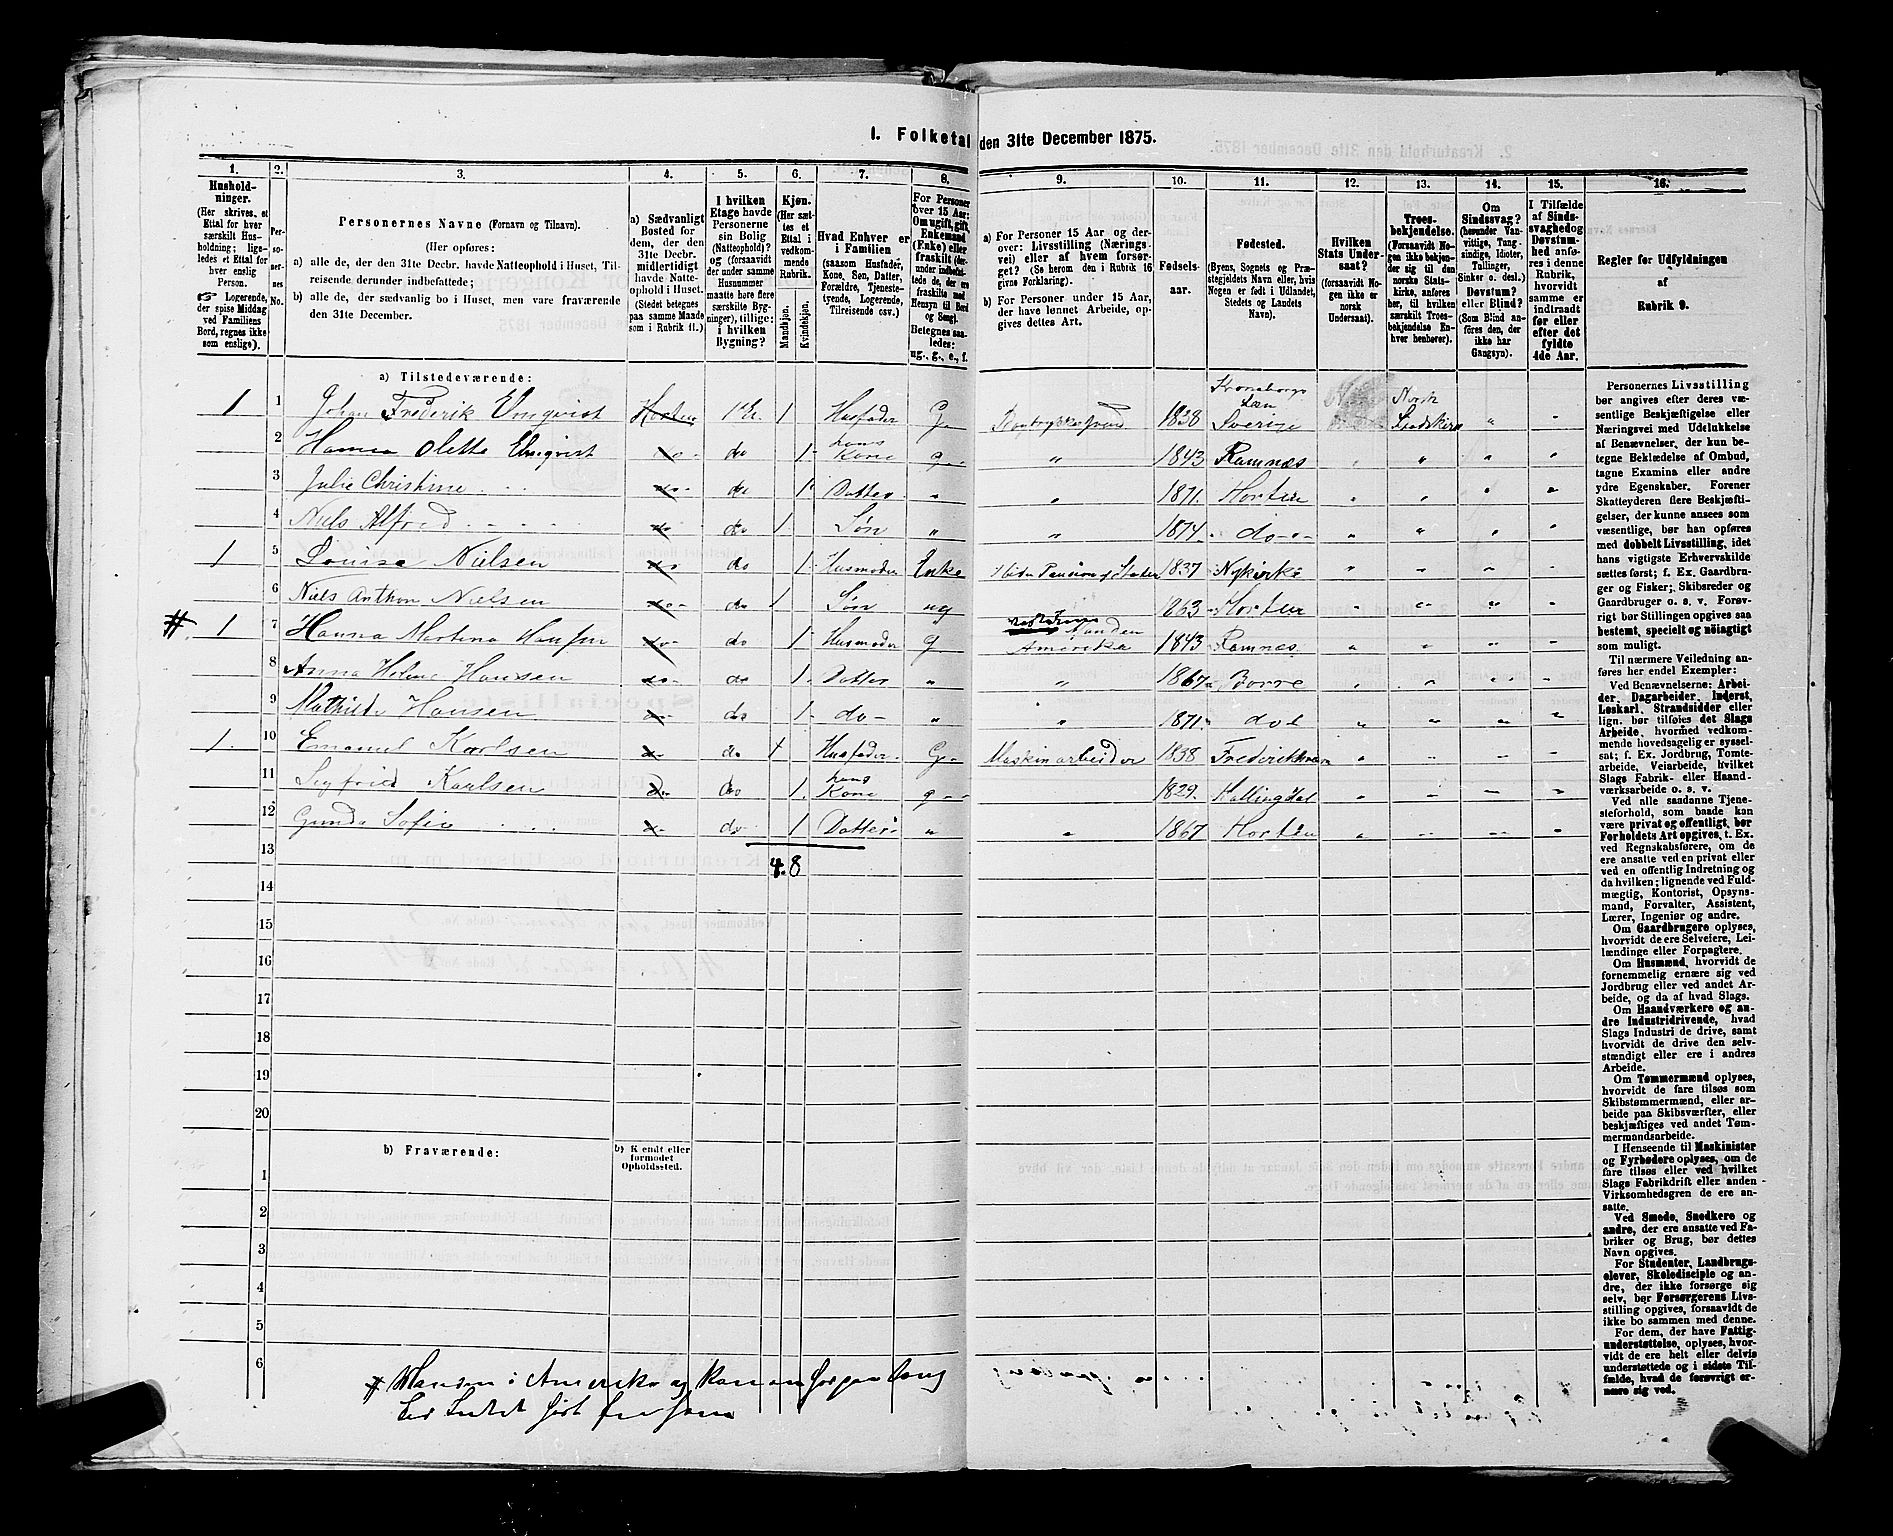 1. Folketal den 31te December 1875.
1. Husholdninger. (Her skrives et Ettal for hver særskilt Husholdning; ligeledes et Ettal for hver enslig Person. Logerende, der spise Middag ved Familiens Bord, regnes ikke som enslige).
2. Personernes No.
3. Personernes Navne (Fornavn og Tilnavn).
(Her opføres:
a) alle de, der den 31te Decbr. havde Natteophold i Huset, Tilreisende derunder indbefattede;
b) alle de, der sædvanlig bo i Huset, men vare fraværende den 31te December.
4. a) Sædvanligt Bosted for dem, der den 31te Decbr. midlertidigt havde Natteophold i Huset. (Stedet betegnes paa samme Maade som i Rubrik 11.)
5. I hvilken Etage havde Personerne sin Bolig (Natteophold)? og (forsaavidt der under samme Husnummer maatte høre flere særskilte Bygninger), tillige: i hvilken Bygning?
6. Kjøn. (Her sættes et Ettal i vedkommende Rubrik. Mandkjøn. Kvindekjøn.
7. Hvad Enhver er i Familien (saasom Husfader, Kone, Søn, Datter, Forældre, Tjenestetyende, Logerende, Tilreisende osv.)
8. For Personer over 15 Aar: Om ugift, gift, Enkemand (Enke) eller fraskilt
Betegnes saaledes: ug., g., e., f.
9. a) For Personer 15 Aar og derover: Livsstilling (Næringsvei) eller af hvem forsørget? (Se herom den i Rubrik 16 givne Forklaring).
b) For Personer under 15 Aar, der have lønnet Arbeide, opgives dettes Art.
10. Fødselsaar.
11. Fødested. (Byens, Sognets og Præstegjeldets Navn eller, hvis Nogen er født i Udlandet, Stedets og Landets Navn).
12. Hvilken Stats Undersaat? (forsaavidt Nogen ikke er norsk Undersaat).
13. Troesbekjendelse. (Forsaavidt Nogen ikke bekjender sig til den norske Statskirke, anføres her, til hvilken særskilt Troesbekjendelse Enhver henhører).
14. Om Sindssvag? (herunder Vanvittige, Tungsindige, Idioter, Tullinger, Sinker o. desl.). Døvstum? eller Blind? (Som Blind anføres den, der ikke har Gangsyn).
15. I Tilfælde af Sindssvaghed og Døvstumhed anføres i denne Rubrik, hvorvidt samme er indtraadt før eller efter det fyldte 4de Aar.
16. Regler for Udfyldningen af Rubrik 9.
a) Tilstedeværende:
1 1 Johan Frederik Elmqvist Horten 1 Et. 1 Husfader G 1838 Kronobergs Län Sverige Norsk Statskirke " -
2 Hanna Olette Elmqvist do- do 1 hans Kone g- " 1843 Ramnæs
3 Julie Christine do- do 1 Datter " " 1871 Horten
4 Niels Alfred do do 1 Søn " " 1874 do
1 5 Louise Nielsen do do 1 Husmoder Enke Pension af Staten 1837 Nykirke
6 Niels Anthon Nielsen do do 1 Søn ug 1863 Horten
# 1 7 Hanna Martina Hansen do do 1 Husmoder G Manden Amerika 1843 Ramnæs
8 Anna Helene Hansen do do 1 Datter " " 1867 Borre
9 Mathilde Hansen do 1 do- " " 1871 do
1 10 Emanuel Karlsen do 1 Husfader G- Maskinarbeider 1838 Frederiksværn
11 Sigfried Karlsen do 1 hans Kone g- 1829 Hallingdal
12 Gunda Sofie do 1 Datter " " 1867 Horten
13 4. 8
14
15
16
17
18
19
20
b) Fraværende: b) Kjendt eller formodet Opholdssted.
1
2
3
4
5
6
# Manden i Amerika og Konen
Personernes Livsstilling
bør angives efter deres væ-
sentlige Beskjæftigelse eller
Næringsvei med Udelukkelse
af Benævnelser, der kun be-
tegne Beklædelse af Ombud,
tagne Examina eller andre
ydre Egenskaber. Forener
Skatteyderen flere Beskjæfti-
gelser, der kunne ansees som
væsentlige, bør han opføres
med dobbelt Livsstilling, idet
hans vigtigste Erhvervskilde
sættes først; f. Ex. Gaardbru-
ger og Fisker; Skibsreder og
Gaardbruger o. s. v. Forøv-
rigt bør Stillingen opgives saa
bestemt, specielt og nöiagtigt
som muligt.
Til nærmere Veiledning an-
føres her endel Exempler:
Ved Benævnelserne: Arbei-
der, Dagarbeider, Inderst,
Løskarl, Strandsidder eller
lign. bør tilføies det Slags
Arbeide, hvormed vedkom-
mende hovedsagelig er syssel-
sat; f. Ex. Jordbrug, Tomte-
arbeide, Veiarbeide, hvilket
Slags Fabrik- eller Haand-
værksarbeide o. s. v.
Ved alle saadanne Tjene-
steforhold, som baade kan
være privat og offentligt, bør
Forholdets Art opgives, t. Ex.
ved Regnskabsførere, om de
ere ansatte ved en privat eller
ved en offentlig Indretning og
da hvilken; lignende ved Fuld-
mægtig, Kontorist, Opsyns-
mand, Forvalter, Assistent,
Lærer, Ingeniør og andre.
Om Gaardbrugere oplyses,
hvorvidt de ere Selveiere, Lei-
lændinge eller Forpagtere.
Om Husmænd, hvorvidt de
fornemmelig ernære sig ved
Jordbrug eller ved andet Ar-
beide, og da af hvad Slags.
Om Haandværkere og an-
dre Industridrivende, hvad
Slags Industri de drive, samt
hvorvidt de drive den selv-
stændigt eller ere i andres
Arbeide.
Om Tømmermænd oplyses,
hvorvidt de fare tilsøs som
Skibstømmermænd, eller ar-
beide paa Skibsværfter, eller
beskjæftiges ved andet Tøm-
mermandsarbeide.
I Henseende til Maskinister
og Fyrbødere oplyses, om de
fare tilsøs eller ved hvilket
Slags Fabrikdrift eller anden
Virksomhedsgren de ere an-
satte.
Ved Smede, Snedkere og
andre, der ere ansatte ved Fa-
briker og Brug, bør dettes
Navn opgives.
For Studenter, Landbrugs-
elever, Skoledisciple og an-
dre, der ikke forsørge sig
selv, bør Forsørgerens Livs-
stilling opgives, forsaavidt de
ikke bo sammen med denne.
For dem, der have Fattig-
understøttelse, oplyses, hvor-
vidt de ere helt eller delvis
understøttede og i sidste Til-
fælde, hvad de forøvrigt er-
nære sig ved.